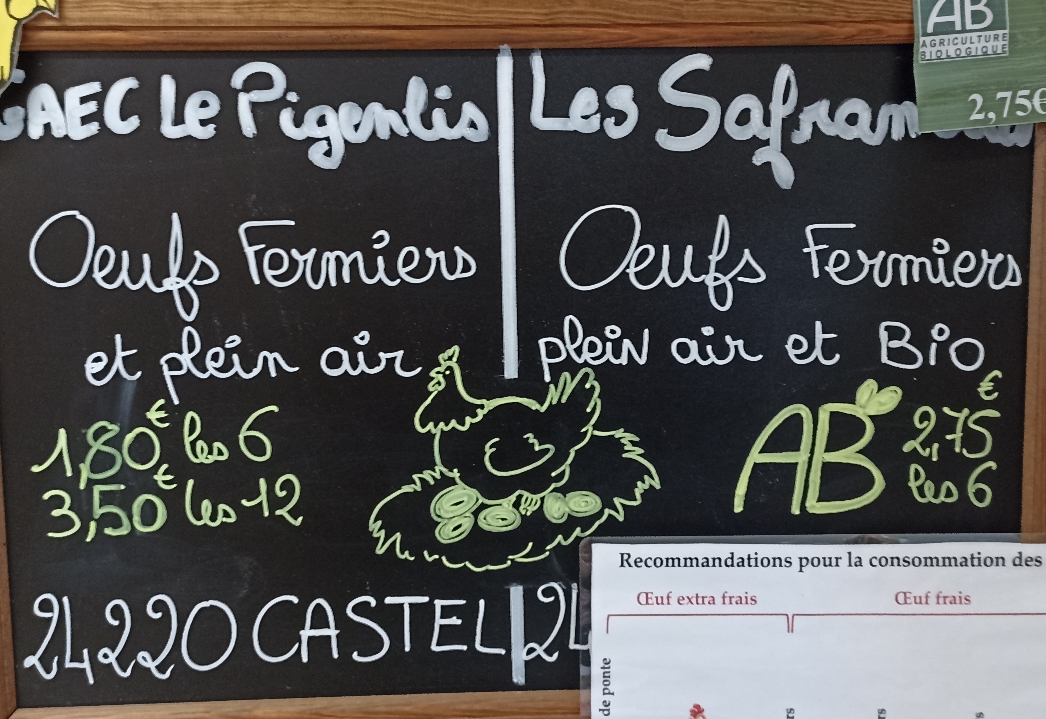 GAEC Le Pigentis
Oeufs Fermiers
et plein air
1,80€ les 6
3,50€ les 12
24220 CASTEL
Les
Oeufs Fermiers
plein air et Bio
AB 2,75€
les 6
24
AB
AGRICULTURE
BIOLOGIQUE
2,75€
Recommandations pour la consommation des
Œuf extra frais
Œuf frais
de ponte